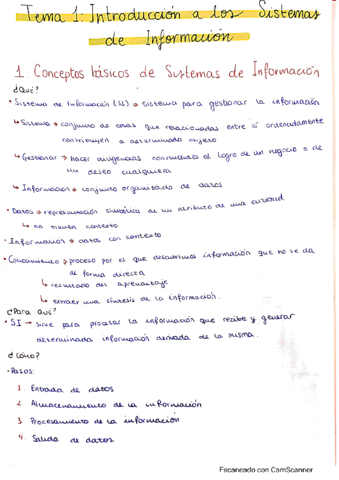 Tema 1: Introducción a los Sistemas
de Información
1. Conceptos básicos de Sistemas de Información
¿Qué?
• Sistema de Información (SI) → sistema para gestionar la información
↳ Sistema → conjunto de cosas que relacionadas entre sí ordenadamente
contribuyen a determinado objeto
↳ Gestionar → hacer diligencias conducentes al logro de un negocio o de
un deseo cualquiera
↳ Información → conjunto organizado de datos
• Datos → representación simbólica de un atributo de una entidad
↳ no tienen contexto
• Información → datos con contexto
• Conocimiento → proceso por el que descubrimos información que no se da
de forma directa
↳ resultado del aprendizaje
↳ extraer una síntesis de la información.
¿Para qué?
• SI → sirve para procesar la información que recibe y generar
determinada información derivada de la misma.
¿Cómo?
• Pasos:
1. Entrada de datos
2. Almacenamiento de la información
3. Procesamiento de la información
4. Salida de datos
Escaneado con CamScanner